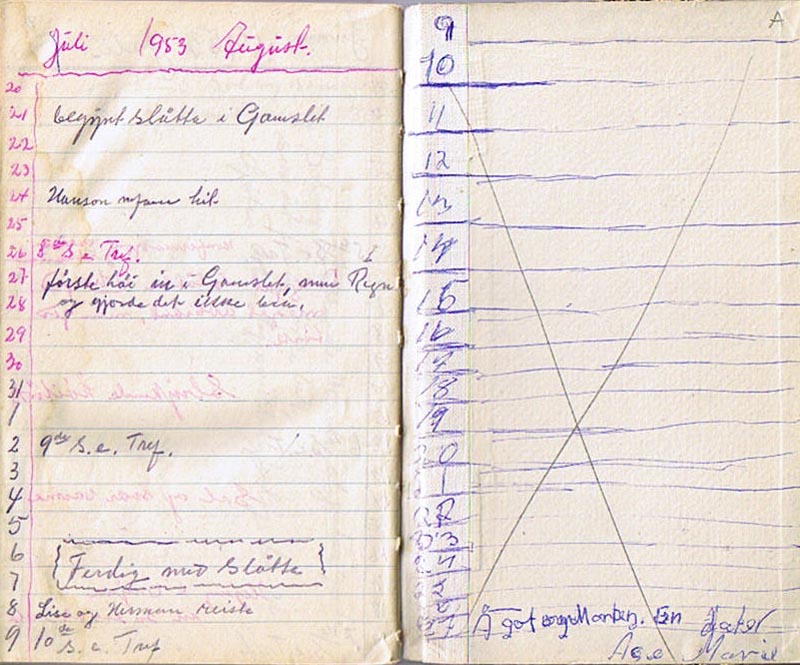 Juli 1953 August.
20
21 begynt Slåtte i Gamslet
22
23
24 Hanson hit
25
26 8de S. e. Tref.
27 første höi in i Gamslet, men Regn
28 og gjorde det ikke bra.
29
30
31
1
2 9de S. e. Tref.
3
4
5
6 Ferdig med Slåtte
7
8 Lise og Herman reiste
9 10de S. e. Tref
A
9
10
11
12
13
14
15
16
17
18
19
20
21
22
23
24
25
27 En Dater
Marie